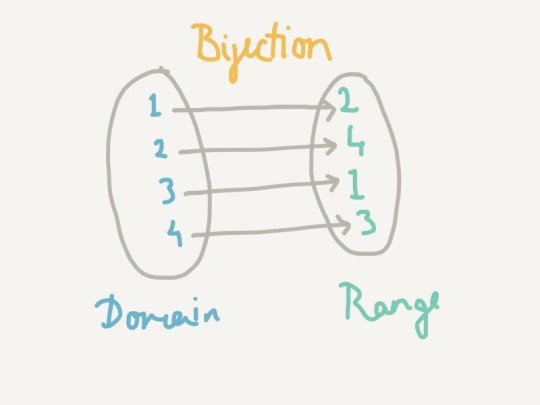 Bijection
1 2
2 4
3 1
4 3
Domain Range